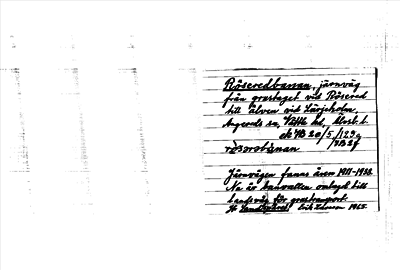 Röseredbanan, järnväg
från grustaget vid Röserad
till älven vid Lärjeholm.
Angereds sn, Vättle hd,
ek YB 20/5/129
YB 29
rö̀sərəbánan
Järnvägen fanns åren 1911-1938.
Nu är banvallen ombygd till
landsväg för grustransport.
1965.